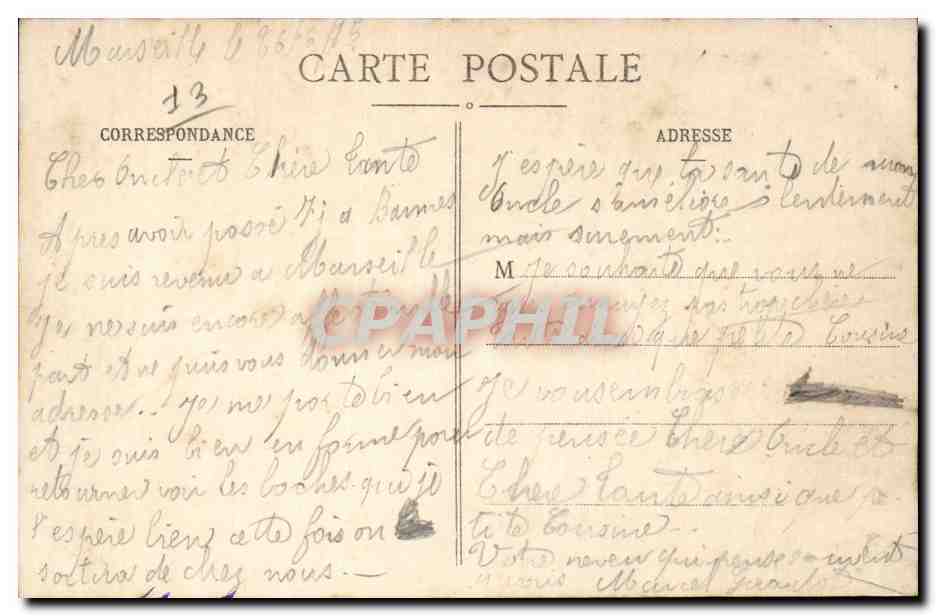 Marseille le
CARTE POSTALE
13
CORRESPONDANCE
Cher Oncle et Chère Tante
Apres avoir passé 7 j a Bannes
je suis revenu a Marseille
Je ne suis encore affecté nulle
part et ne puis vous donner mon
adresse.. Je me porte bien
et je suis bien en forme pour
retourner voir les boches qui je
l'espère bien cette fois on
sortira de chez nous.—
ADRESSE
J'espère que la santé de mon
Oncle s'améliore lentement
mais surement:
M Je souhaite que vous ne
pas trop chère
que petite Cousine
Je vous embrasse
de pensée Chère Oncle et
Chère Tante ainsi que pe-
tite Cousine.
Votre neveu qui pense souvent
a vous Marcel
CPAPHIL